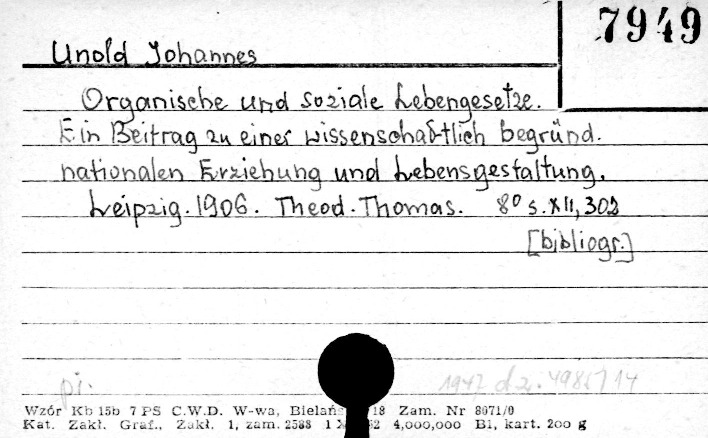 7949
Unold Johannes
Organische und soziale Lebengesetze.
Ein Beitrag zu einer wissenschaftlich begründ.
nationalen Erziehung und Lebensgestaltung.
Leipzig. 1906. Theod. Thomas. 8° s. XII, 302
[bibliogr.]
pi. 1947 dz.
Wzór Kb 15b 7 PS C.W.D. W-wa, Bielańs 18 Zam. Nr 8071/0
Kat. Zakł. Graf., Zakł. 1, zam. 2588 1 4,000,000 B1, kart. 200 g